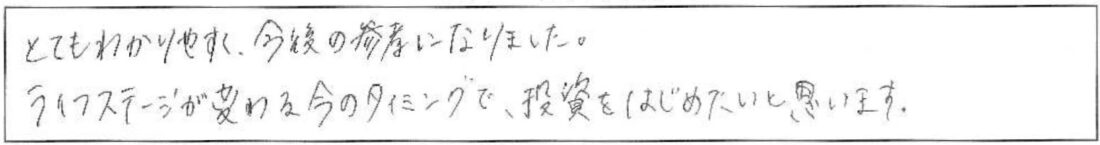 とてもわかりやすく、今後の参考になりました。
ライフステージが変わる今のタイミングで、投資をはじめたいと思います。